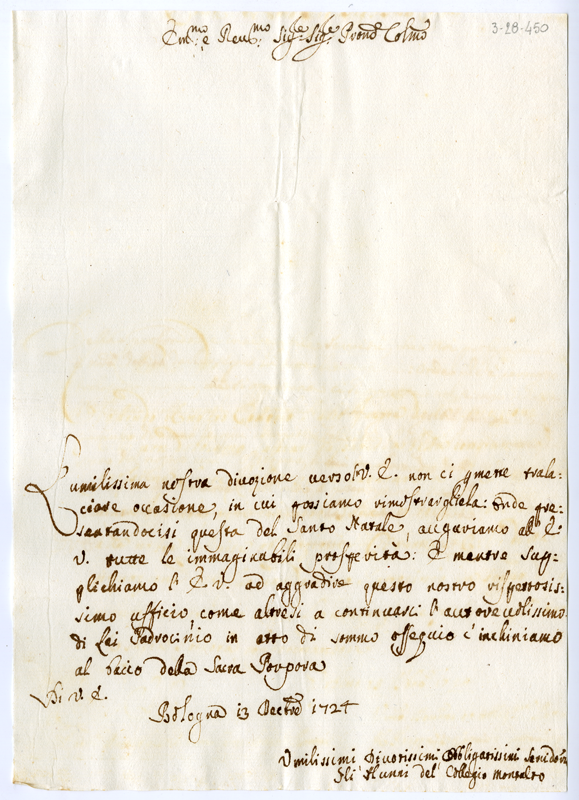 3-28-450
Em:mo e Reu:mo Sig:re Sig:re Pron'e Colmo
L'umilissima nostra divozione verso l'V. E. non ci permette trala:
sciare occasione, in cui possiamo rimostrargliela: Onde pre:
sentandocisi questa del Santo Natale, auguriamo all' E:
V. tutte le immaginabili prosperità: E mentre sup:
plichiamo l' E. V. ad aggradire questo nostro rispettosis:
simo uffizio, come altresì a continuarci l'autorevolissimo
di Lei Padrocinio in atto di sommo ossequio c'inchiniamo
al bacio della Sacra Porpora
Di V. E.
Bologna 13 Decbre 1724
Umilissimi Divotissimi Obbligatissimi Servidori
Gli Alunni del Collegio Montalto